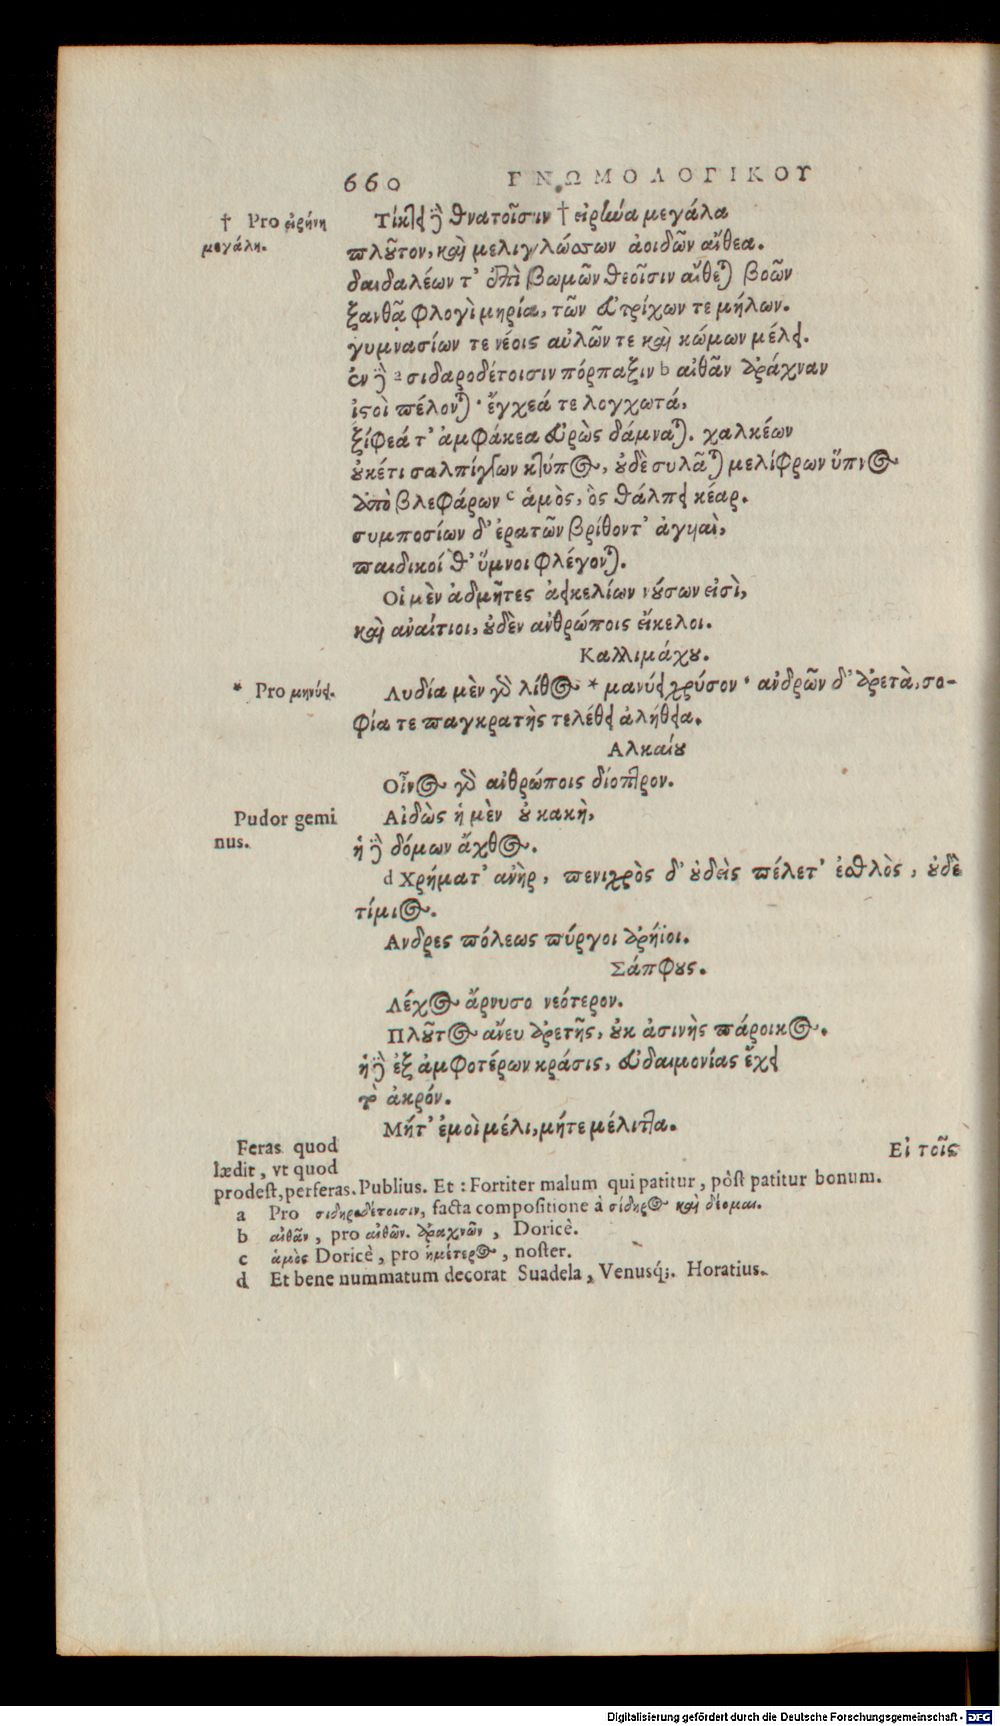 660 ΓΝΩΜΟΛΟΓΙΚΟΥ
† Pro εἰρήνη
μεγάλη.
Τίκτει δὲ θνατοῖσιν † εἰρήνα μεγάλα
πλοῦτον, καὶ μελιγλώσσων ἀοιδῶν αἴθεα.
δαιδαλέων τ' ἐπὶ βωμῶν θεοῖσιν αἴθεται βοῶν
ξανθᾷ φλογὶ μηρία, τῶν εὐτρίχων τε μήλων.
γυμνασίων τε νέοις αὐλῶν τε καὶ κώμων μέλει.
ἐν δὲ a σιδαροδέτοισιν πόρπαξιν b αἰθᾶν ἀράχναν
ἱστοὶ πέλονται· ἔγχεά τε λογχωτά,
ξίφεά τ' ἀμφάκεα εὐρὼς δάμναται. χαλκέων
οὐκέτι σαλπίγγων κτύπος, οὐδὲ συλᾶται μελίφρων ὕπνος
ἀπὸ βλεφάρων c ἁμὸς, ὃς θάλπει κέαρ.
συμποσίων δ' ἐρατῶν βρίθοντ' ἀγυιαὶ,
παιδικοί θ' ὕμνοι φλέγονται.
Οἱ μὲν ἀδμῆτες ἀεικελίων νούσων εἰσὶ,
καὶ ἀναίτιοι, οὐδὲν ἀνθρώποις εἴκελοι.
Καλλιμάχου.
* Pro μηνύει.
Λυδία μὲν γὰρ λίθος * μανύει χρύσον· ἀνδρῶν δ' ἀρετὰ, σο-
φία τε παγκρατὴς τελέθει ἀλήθεια.
Αλκαίου
Οἶνος γὰρ ἀνθρώποις δίοπτρον.
Pudor gemi
nus.
Αἰδὼς ἡ μὲν οὐ κακὴ,
ἡ δὲ δόμων ἄχθος.
d Χρήματ' ἀνὴρ, πενιχρὸς δ' οὐδεὶς πέλετ' ἐσθλὸς, οὐδὲ
τίμιος.
Ανδρες πόλεως πύργοι ἀρήϊοι.
Σάπφους.
Λέχος ἄρνυσο νεότερον.
Πλοῦτος ἄνευ ἀρετῆς, οὐκ ἀσινὴς πάροικος.
ἡ δὲ ἐξ ἀμφοτέρων κράσις, εὐδαιμονίας ἔχει
τὸ ἀκρόν.
Μήτ' ἐμοὶ μέλι, μήτε μέλιττα.
Εἰ τοῖς
Feras quod
lædit, vt quod
prodest, perferas. Publius. Et : Fortiter malum qui patitur, pòst patitur bonum.
a Pro σιδηροδέτοισιν, facta compositione à σίδηρος καὶ δέομαι.
b αἰθᾶν, pro αἰθῶν. ἀραχνῶν, Doricè.
c ἁμὸς Doricè, pro ἡμέτερος, noster.
d Et bene nummatum decorat Suadela, Venusq́;. Horatius.
Digitalisierung gefördert durch die Deutsche Forschungsgemeinschaft - DFG